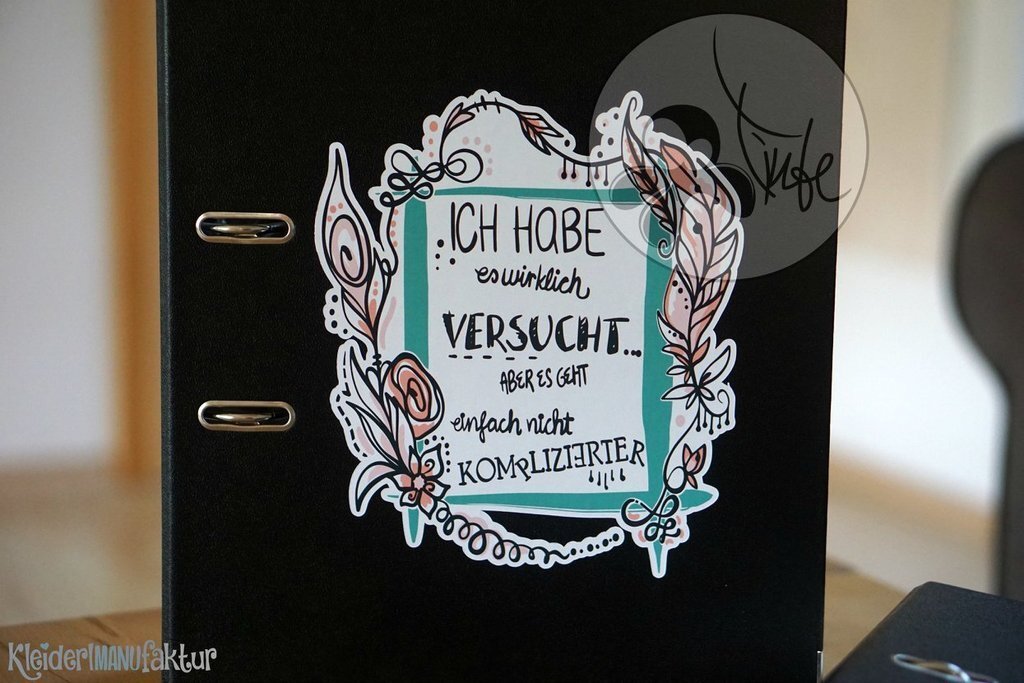 ICH HABE
es wirklich
VERSUCHT...
ABER ES GEHT
einfach nicht
KOMPLIZIERTER
Kleider|MANUfaktur